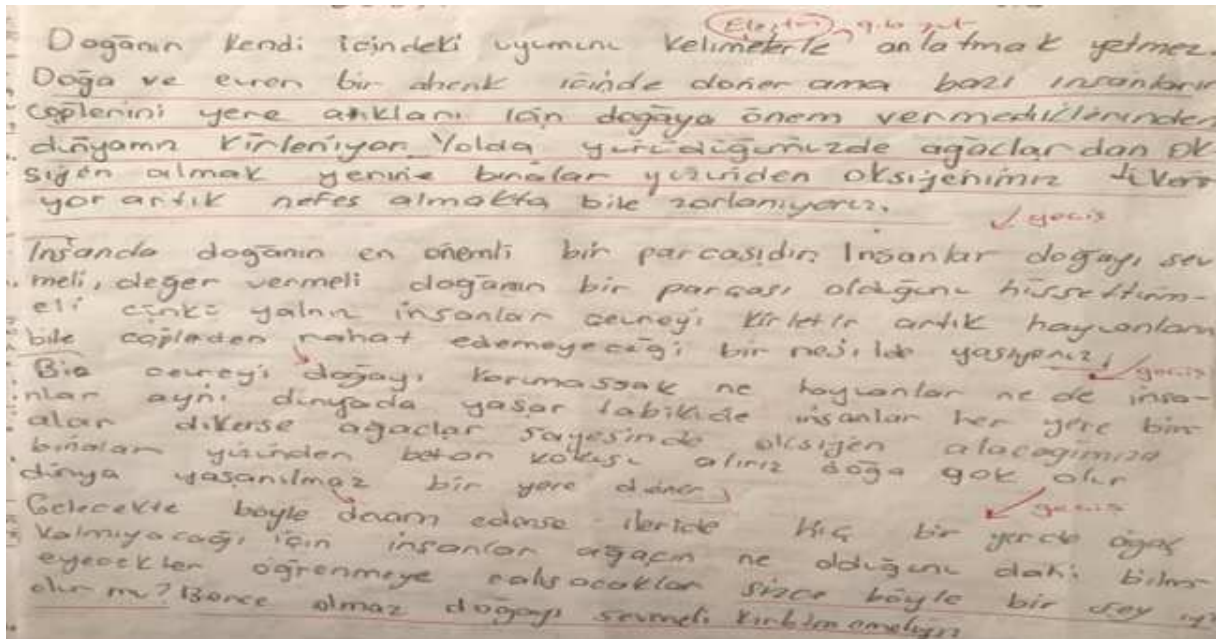 Eleştiri gibi
Doğanın kendi içindeki uyumunu kelimelerle anlatmak yetmez.
Doğa ve evren bir ahenk içinde döner ama bazı insanların
çöplerini yere attıkları için doğaya önem vermediklerinden
dünyamız kirleniyor. Yolda yürüdüğümüzde ağaçlardan ok
sijen almak yerine binalar yüzünden oksijenimiz
yor artık nefes almakta bile zorlanıyoruz.
geçiş
İnsanda doğanın en önemli bir parçasıdır. İnsanlar doğayı sev
meli, değer vermeli doğanın bir parçası olduğunu hissettirm-
eli çünkü yalnız insanlar çevreyi kirletir artık hayvanların
bile çöplerden rahat edemeyeceği bir nesilde yaşıyoruz.
geçiş
Biz çevreyi doğayı korumassak ne hayvanlar ne de insa-
nlar aynı dünyada yaşar tabikide insanlar her yere bin-
alar dikerse ağaçlar sayesinde oksijen alacağımıza
binalar yüzünden beton kokusu alırız doğa yok olur
dünya yaşanılmaz bir yere döner.
geçiş
Gelecekte böyle devam ederse ileride hiç bir yerde ağaç
kalmıyacağı için insanlar ağaçın ne olduğunu dahi bilm-
eyecekler öğrenmeye çalışacaklar sizce böyle bir şey
olur mu? Bence olmaz doğayı sevmeli